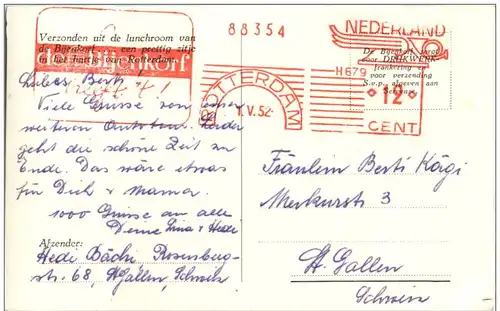 Verzonden uit de lunchroom van
de Bijenkorf een prettig zitje
in het hartje van Rotterdam.
de Bijenkorf
88354
NEDERLAND
De Bijenkorf zorgt
voor DRUKWERK
frankering en
voor verzending
S.v.p. afgeven aan
H679
12
CENT
ROTTERDAM
1.V.52
Liebes Berti
Viele Grüsse von einer
weiteren Autotour. Leider
geht die schöne Zeit zu
Ende. Das wäre etwas
für Dich & Mamer.
1000 Grüsse an alle
Deine Lina & Hedi
Afzender:
Hedi Bächi, Rosenberg-
str. 68, St. Gallen, Schweiz
Fräulein Berti Kägi
Merkurstr 3
St. Gallen
Schweiz